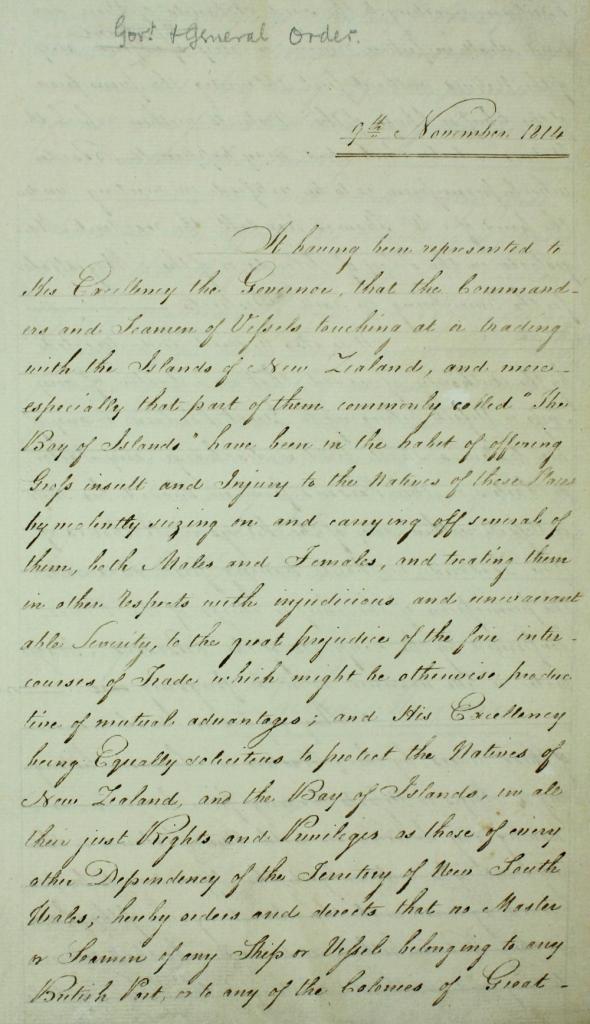 Govt. & General Order.
9th November 1814
It having been represented to
His Excellency the Governor, that the Command-
ers and Seamen of Vessels touching at or trading
with the Islands of New Zealand, and more-
especially that part of them commonly called "The
Bay of Islands" have been in the habit of offering
Gross insult and Injury to the Natives of those Places
by violently siezing on and carrying off several of
them, both Males and Females, and treating them
in other respects with injudicious and unwarrant
able Severity, to the great prejudice of the fair inter-
courses of Trade which might be otherwise produc
tive of mutual advantages; and His Excellency
being Equally solicitous to protect the Natives of
New Zealand, and the Bay of Islands, in all
their just Rights and Privileges as those of every
other Dependency of the Territry of New South
Wales, hereby orders and directs that no Master
or Seamen of any Ship or Vessel belonging to any
British Port, or to any of the Colonies of Great-